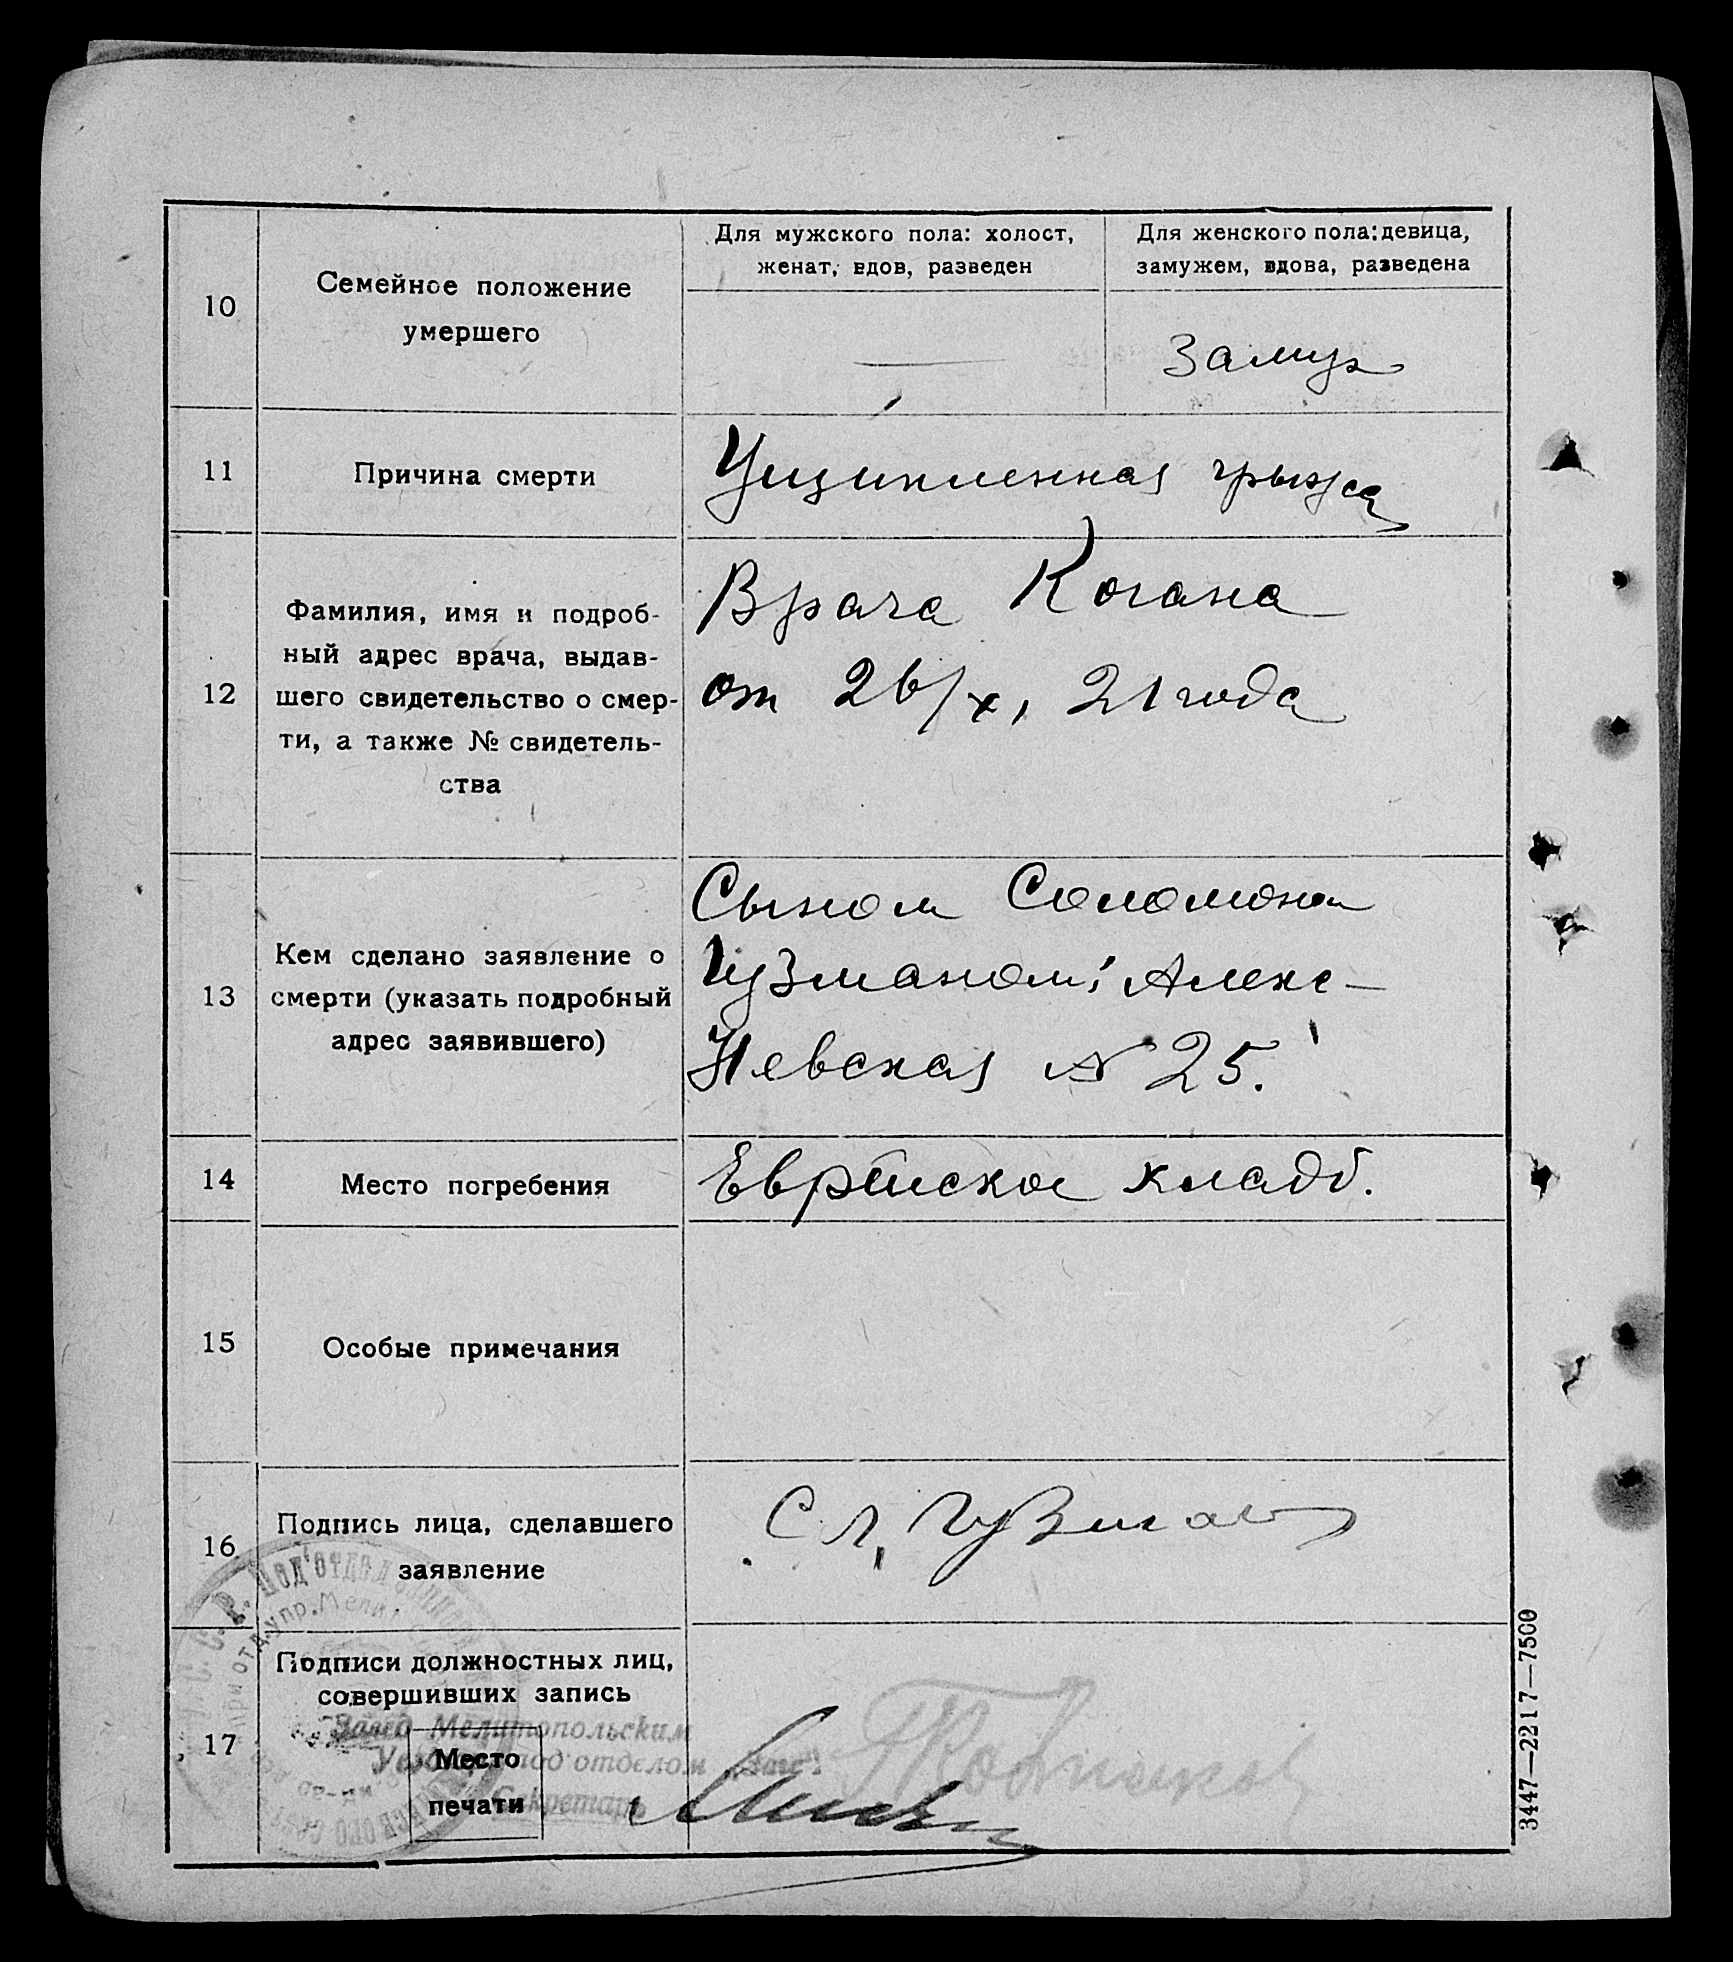 10
Семейное положение
умершего
Для мужского пола: холост,
женат, вдов, разведен
Для женского пола: девица,
замужем, вдова, разведена
Замуж
11
Причина смерти
Ущипленная грыжа
12
Фамилия, имя и подроб-
ный адрес врача, выдав-
шего свидетельство о смер-
ти, а также № свидетель-
ства
Врача Когана
от 26/X, 21 года
13
Кем сделано заявление о
смерти (указать подробный
адрес заявившего)
Сыном Соломоном
Гузманом; Алекс-
Невская № 25.
14
Место погребения
Еврейское кладб.
15
Особые примечания
16
Подпись лица, сделавшего
заявление
С Л, Гузман
17
Подписи должностных лиц,
совершивших запись
Завед Мелитопольским
под отделом
Секретарь
Место
печати
3447—2217—7500